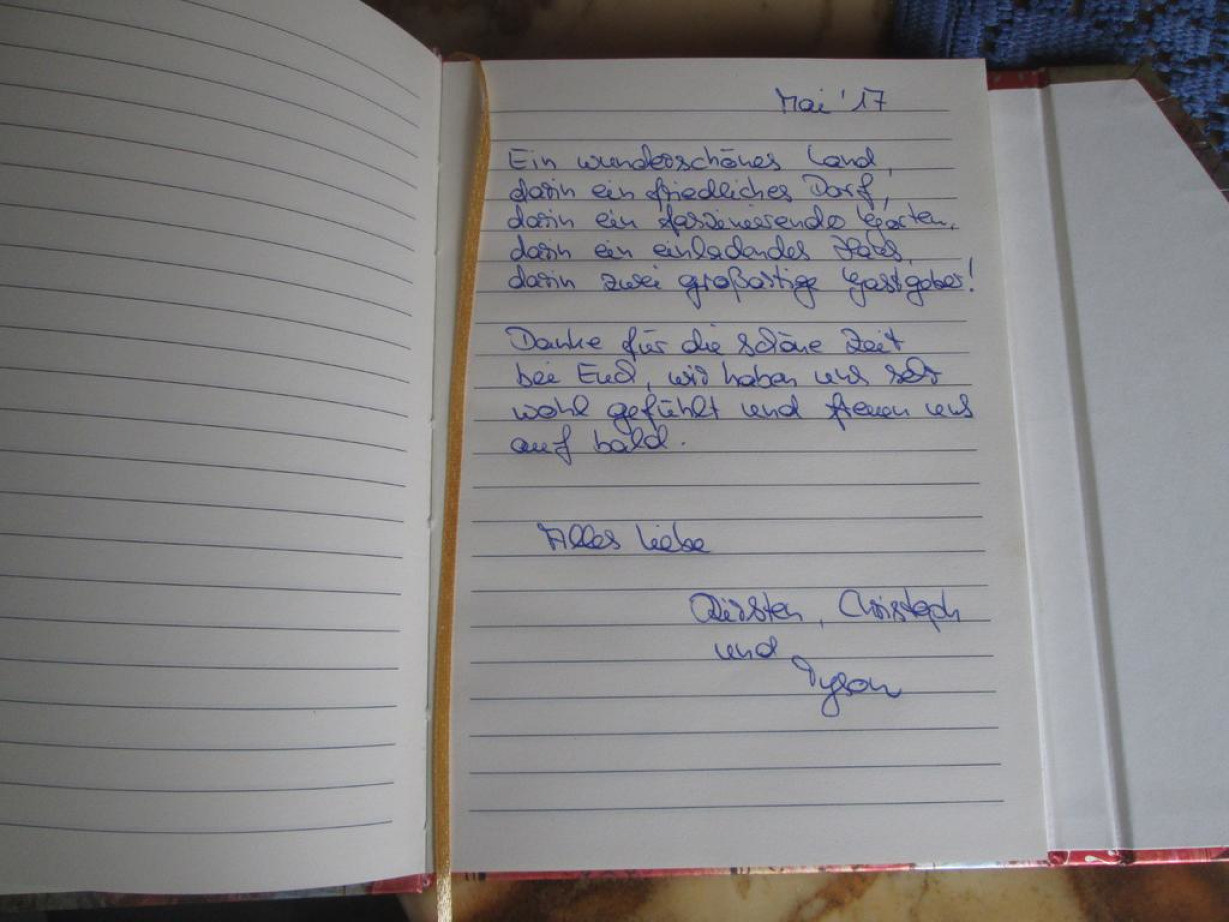 Mai '17
Ein wunderschönes Land,
darin ein friedliches Dorf,
darin ein faszinierender Garten,
darin ein einladendes Haus,
darin zwei großartige Gastgeber!
Danke für die schöne Zeit
bei Euch, wir haben uns sehr
wohl gefühlt und freuen uns
auf bald.
Alles Liebe
Kirsten, Christoph
und
Tyson